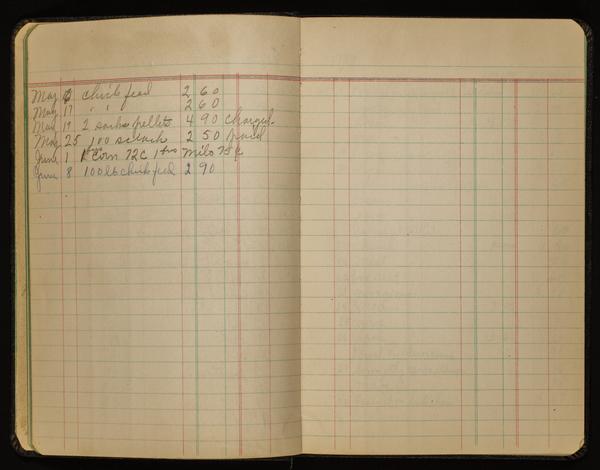 May 6 chick feed 2 60
May 17 " " 2 60
May 19 2 sacks pellets 4 90 charged
May 25 100 scrach 2 50 paid
June 1 1 Corn 72c 1 Milo 75c
June 8 100 lb chick feed 2 90